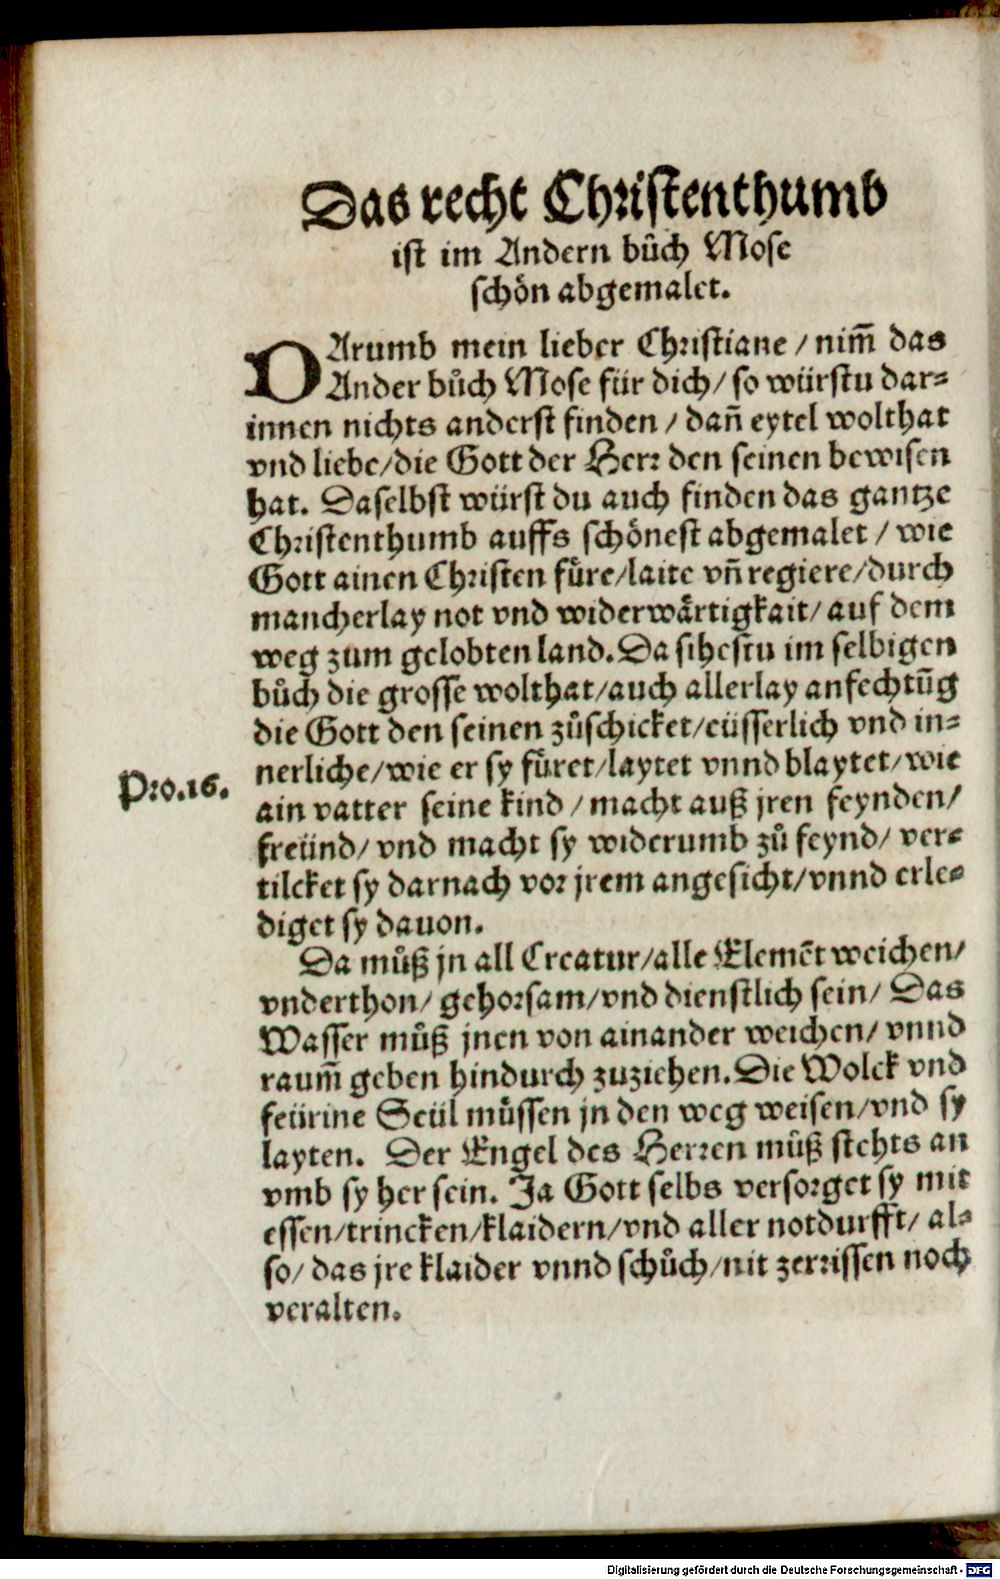 Das recht Christenthumb
ist im Andern bůch Mose
schön abgemalet.
DArumb mein lieber Christiane / nim̄ das
Ander bůch Mose für dich / so würstu dar=
innen nichts anderst finden / dan̄ eytel wolthat
vnd liebe / die Gott der Herr den seinen bewisen
hat. Daselbst würst du auch finden das gantze
Christenthumb auffs schönest abgemalet / wie
Gott ainen Christen füre / laite vn̄ regiere / durch
mancherlay not vnd widerwärtigkait / auf dem
weg zum gelobten land. Da sihestu im selbigen
bůch die grosse wolthat / auch allerlay anfechtūg
die Gott den seinen zůschicket / eüsserlich vnd in=
nerliche / wie er sy füret / laytet vnnd blaytet / wie
Pro.16.
ain vatter seine kind / macht auß jren feynden /
freünd / vnd macht sy widerumb zů feynd / ver=
tilcket sy darnach vor jrem angesicht / vnnd erle=
diget sy dauon.
Da můß jn all Creatur / alle Elemēt weichen /
vnderthon / gehorsam / vnd dienstlich sein / Das
Wasser můß jnen von ainander weichen / vnnd
raum̄ geben hindurch zuziehen. Die Wolck vnd
feürine Seül müssen jn den weg weisen / vnd sy
layten. Der Engel des Herren můß stehts an
vmb sy her sein. Ja Gott selbs versorget sy mit
essen / trincken / klaidern / vnd aller notdurfft / al=
so / das jre klaider vnnd schůch / nit zerrissen noch
veralten.
Digitalisierung gefördert durch die Deutsche Forschungsgemeinschaft - DFG